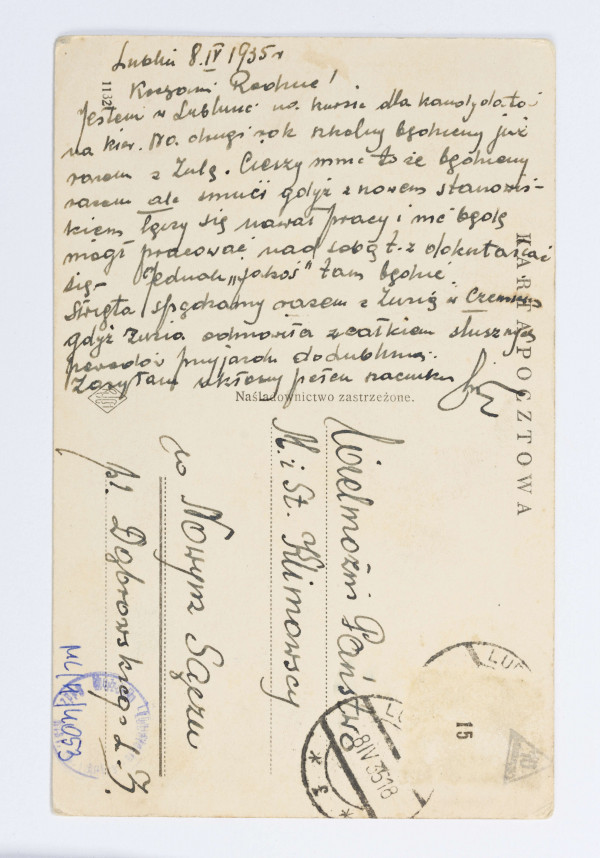 Lublin 8.IV 1935 r
Kochani Rodzice!
Jestem w Lublinie na kursie dla kandydatów
na kier. Na drugi rok szkolny będziemy już
razem z Zulą. Cieszy mnie to że będziemy
razem ale smuci gdyż z nowem stanowis-
kiem łączy się nawał pracy i nie będę
mógł pracować nad sobą t.z dokształcać
się- Jednak "jakoś" tam będzie.
Święta spędzamy razem z Zunią w
gdyż Zunia odmówiła z całkiem słusznych
powodów przyjazdu do Lublina.
Zasyłam ukłony pełen szacunku
1132
Naśladownictwo zastrzeżone.
KARTA POCZTOWA
Wielmożni Państwo
M. i St. Klimowscy
w Nowym Sączu
pl. Dąbrowskiego L. 3.
LUB
8 IV 35 18
* 3 *
15
10
ML/H/4053